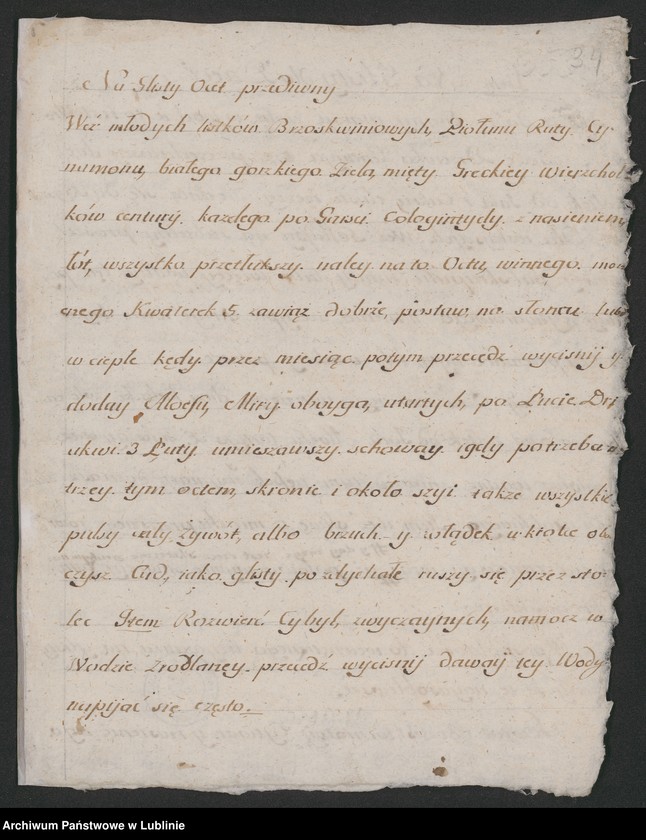 34
Na Glisty Ocet przediwny
Weź młodych listków Brzoskwiniowych, Piołunu Ruty. Cy-
namonu, białego gorzkiego Ziela, mięty Greckiey Wierzchoł-
ków centuryj. każdego po Garści Cologintydy z nasieniem,
łót, wszystko przetłukszy. naley na to Octu, winnego. moc
nego Kwaterek 5. zawiąż dobrże, postaw, na słońcu lub
w cieple kędy. przez miesiąc potym przecędź wyciśnij y
doday Aloesu, Miry oboyga, utartych, po Łucie.
3 Łuty umieszawszy. schoway. igdy potrzeba
trzey tym octem, skronie i około szyi także wszystkie
pulsy cały żywót, albo brzuch y. żołądek wkrotce oba
czysz Cud, iako glisty pozdychałe ruszy się przez sto-
lec Item Rozwierć Cybyl, zwyczaynych, namocz w
Wodzie Zrodlaney. przecedz wyciśnij daway tey Wody
napijać się często.
Archiwum Państwowe w Lublinie